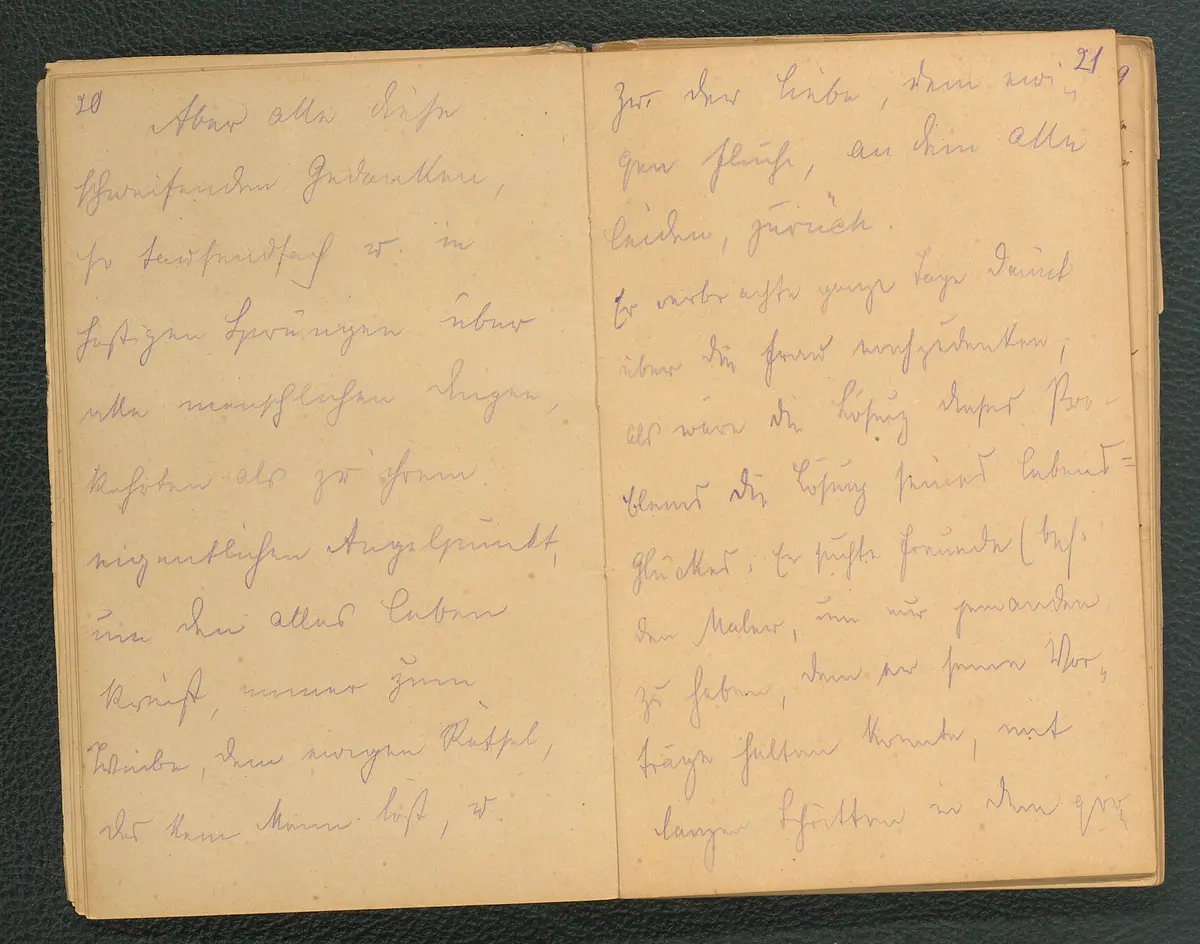 20
Aber alle diese
schweifenden Gedanken,
so tausendfach u. in
hastigen Sprüngen über
alle menschlichen Dinge,
kehrten als zu ihrem
eigentlichen Angelpunkt,
um den alles Leben
kreist, immer zum
Weibe, dem ewigen Rätsel,
das kein Mann löst, u.
21
zu der Liebe, dem ewi-
gen Fluche, an dem alle
leiden, zurück.
Er verbrachte ganze Tage damit
über die Frau nachzudenken,
als wäre die Lösung dieses Pro-
blems die Lösung seines Lebens=
glückes. Er suchte Freunde (bes.
den Maler, um nur jemanden
zu haben, dem er seine Vor-
träge halten konnte, mit
langen Schritten in dem gro-
9